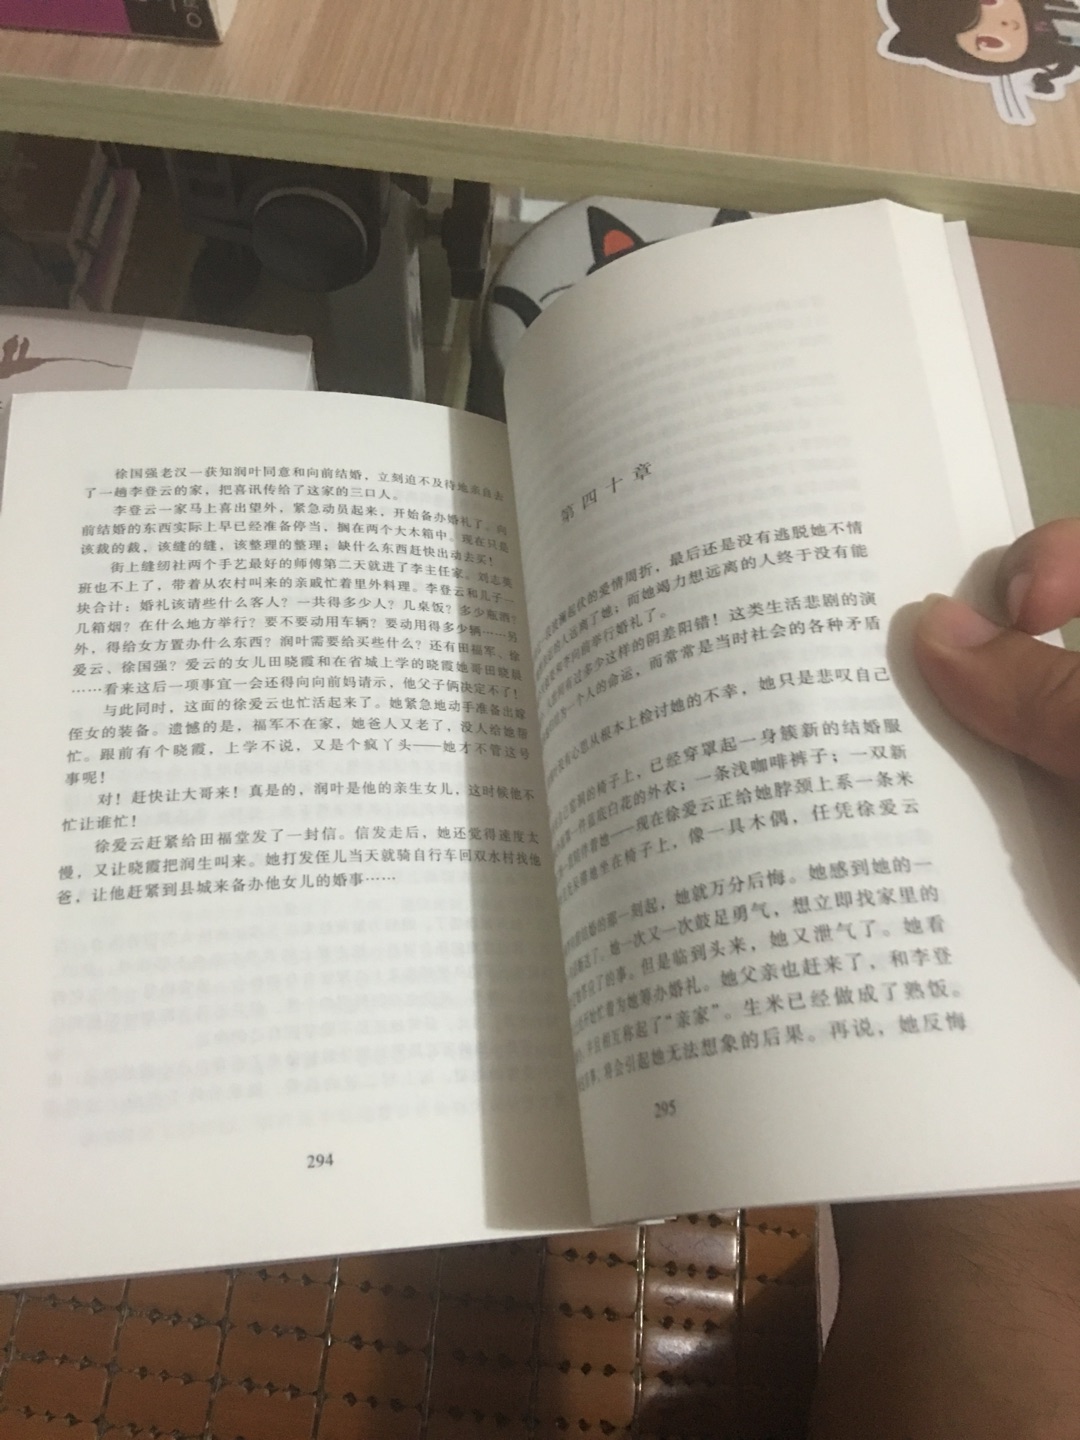 徐国强老汉一获知润叶同意和向前结婚，立刻迫不及待地亲自去
了一趟李登云的家，把喜讯传给了这家的三口人。
李登云一家马上喜出望外，紧急动员起来，开始备办婚礼了。向
前结婚的东西实际上早已经准备停当，搁在两个大木箱中。现在只是
该裁的裁，该缝的缝，该整理的整理；缺什么东西赶快出动去买！
街上缝纫社两个手艺最好的师傅第二天就进了李主任家。刘志英
班也不上了，带着从农村叫来的亲戚忙着里外料理。李登云和儿子一
块合计：婚礼该请些什么客人？一共得多少人？几桌饭？多少瓶酒？
几箱烟？在什么地方举行？要不要动用车辆？要动用得多少辆……另
外，得给女方置办什么东西？润叶需要给买些什么？还有田福军、徐
爱云、徐国强？爱云的女儿田晓霞和在省城上学的晓霞她哥田晓晨
……看来这后一项事宜一会还得向向前妈请示，他父子俩决定不了！
与此同时，这面的徐爱云也忙活起来了。她紧急地动手准备出嫁
侄女的装备。遗憾的是，福军不在家，她爸人又老了，没人给她帮
忙。跟前有个晓霞，上学不说，又是个疯丫头——她才不管这号
事呢！
对！赶快让大哥来！真是的，润叶是他的亲生女儿，这时候他不
忙让谁忙！
徐爱云赶紧给田福堂发了一封信。信发走后，她还觉得速度太
慢，又让晓霞把润生叫来。她打发侄儿当天就骑自行车回双水村找他
爸，让他赶紧到县城来备办他女儿的婚事……
294
第四十章
起伏的爱情周折，最后还是没有逃脱她不情
的人远离了她；而她竭力想远离的人终于没有能
和李向前举行婚礼了。
有过多少这样的阴差阳错！这类生活悲剧的演
为一个人的命运，而常常是当时社会的各种矛盾
没有心思从根本上检讨她的不幸，她只是悲叹自己
的椅子上，已经穿罩起一身簇新的结婚服
白花的外衣；一条浅咖啡裤子；一双新
着她——现在徐爱云正给她脖颈上系一条米
地坐在椅子上，像一具木偶，任凭徐爱云
结婚的那一刻起，她就万分后悔。她感到她的一
断送了。她一次又一次鼓足勇气，想立即找家里的
应了的事。但是临到头来，她又泄气了。她看
开始忙着为她筹办婚礼。她父亲也赶来了，和李登
相互称起了“亲家”。生米已经做成了熟饭。
事，将会引起她无法想象的后果。再说，她反悔
295